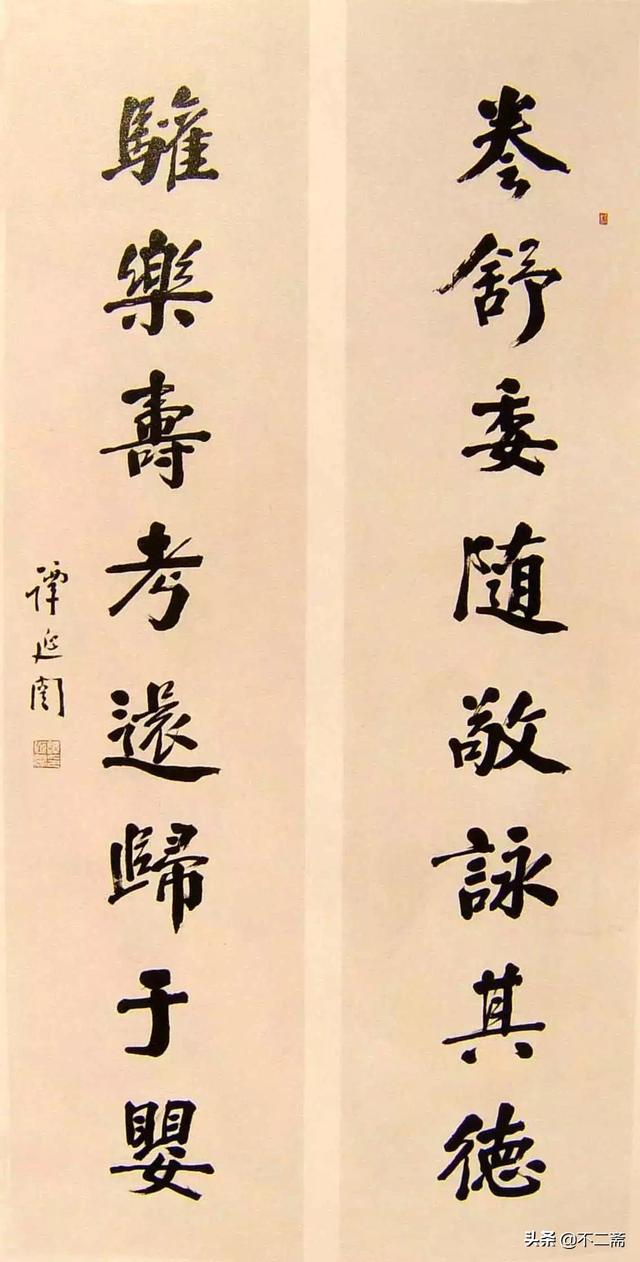 卷舒委随敬詠其德
驩樂壽考還歸于嬰
譚延闓
头条 @不二斋